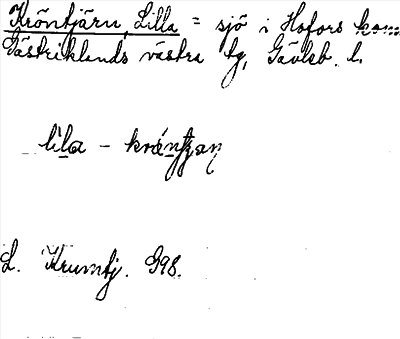 Kröntjärn, Lilla = sjö i Hofors kom
Gästriklands västra tg, Gävleb. l.
lila - kröntjan
L. Krumtj. G98.